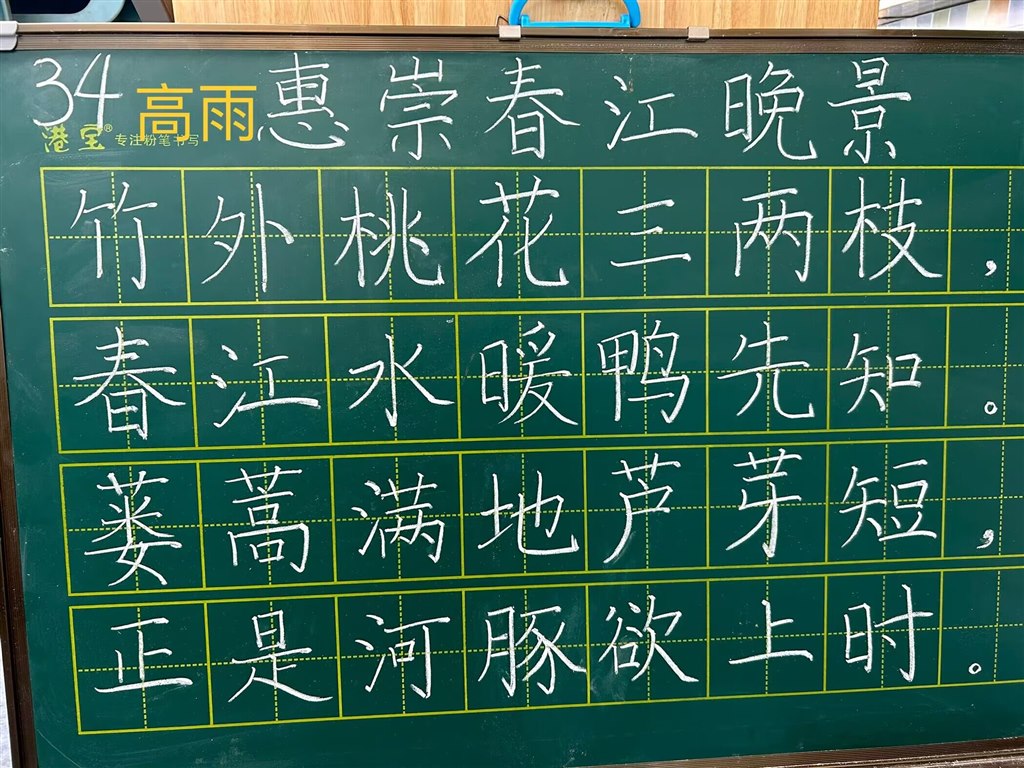 34 高雨 惠崇春江晚景
港宝® 专注粉笔书写
竹外桃花三两枝，
春江水暖鸭先知。
蒌蒿满地芦芽短，
正是河豚欲上时。